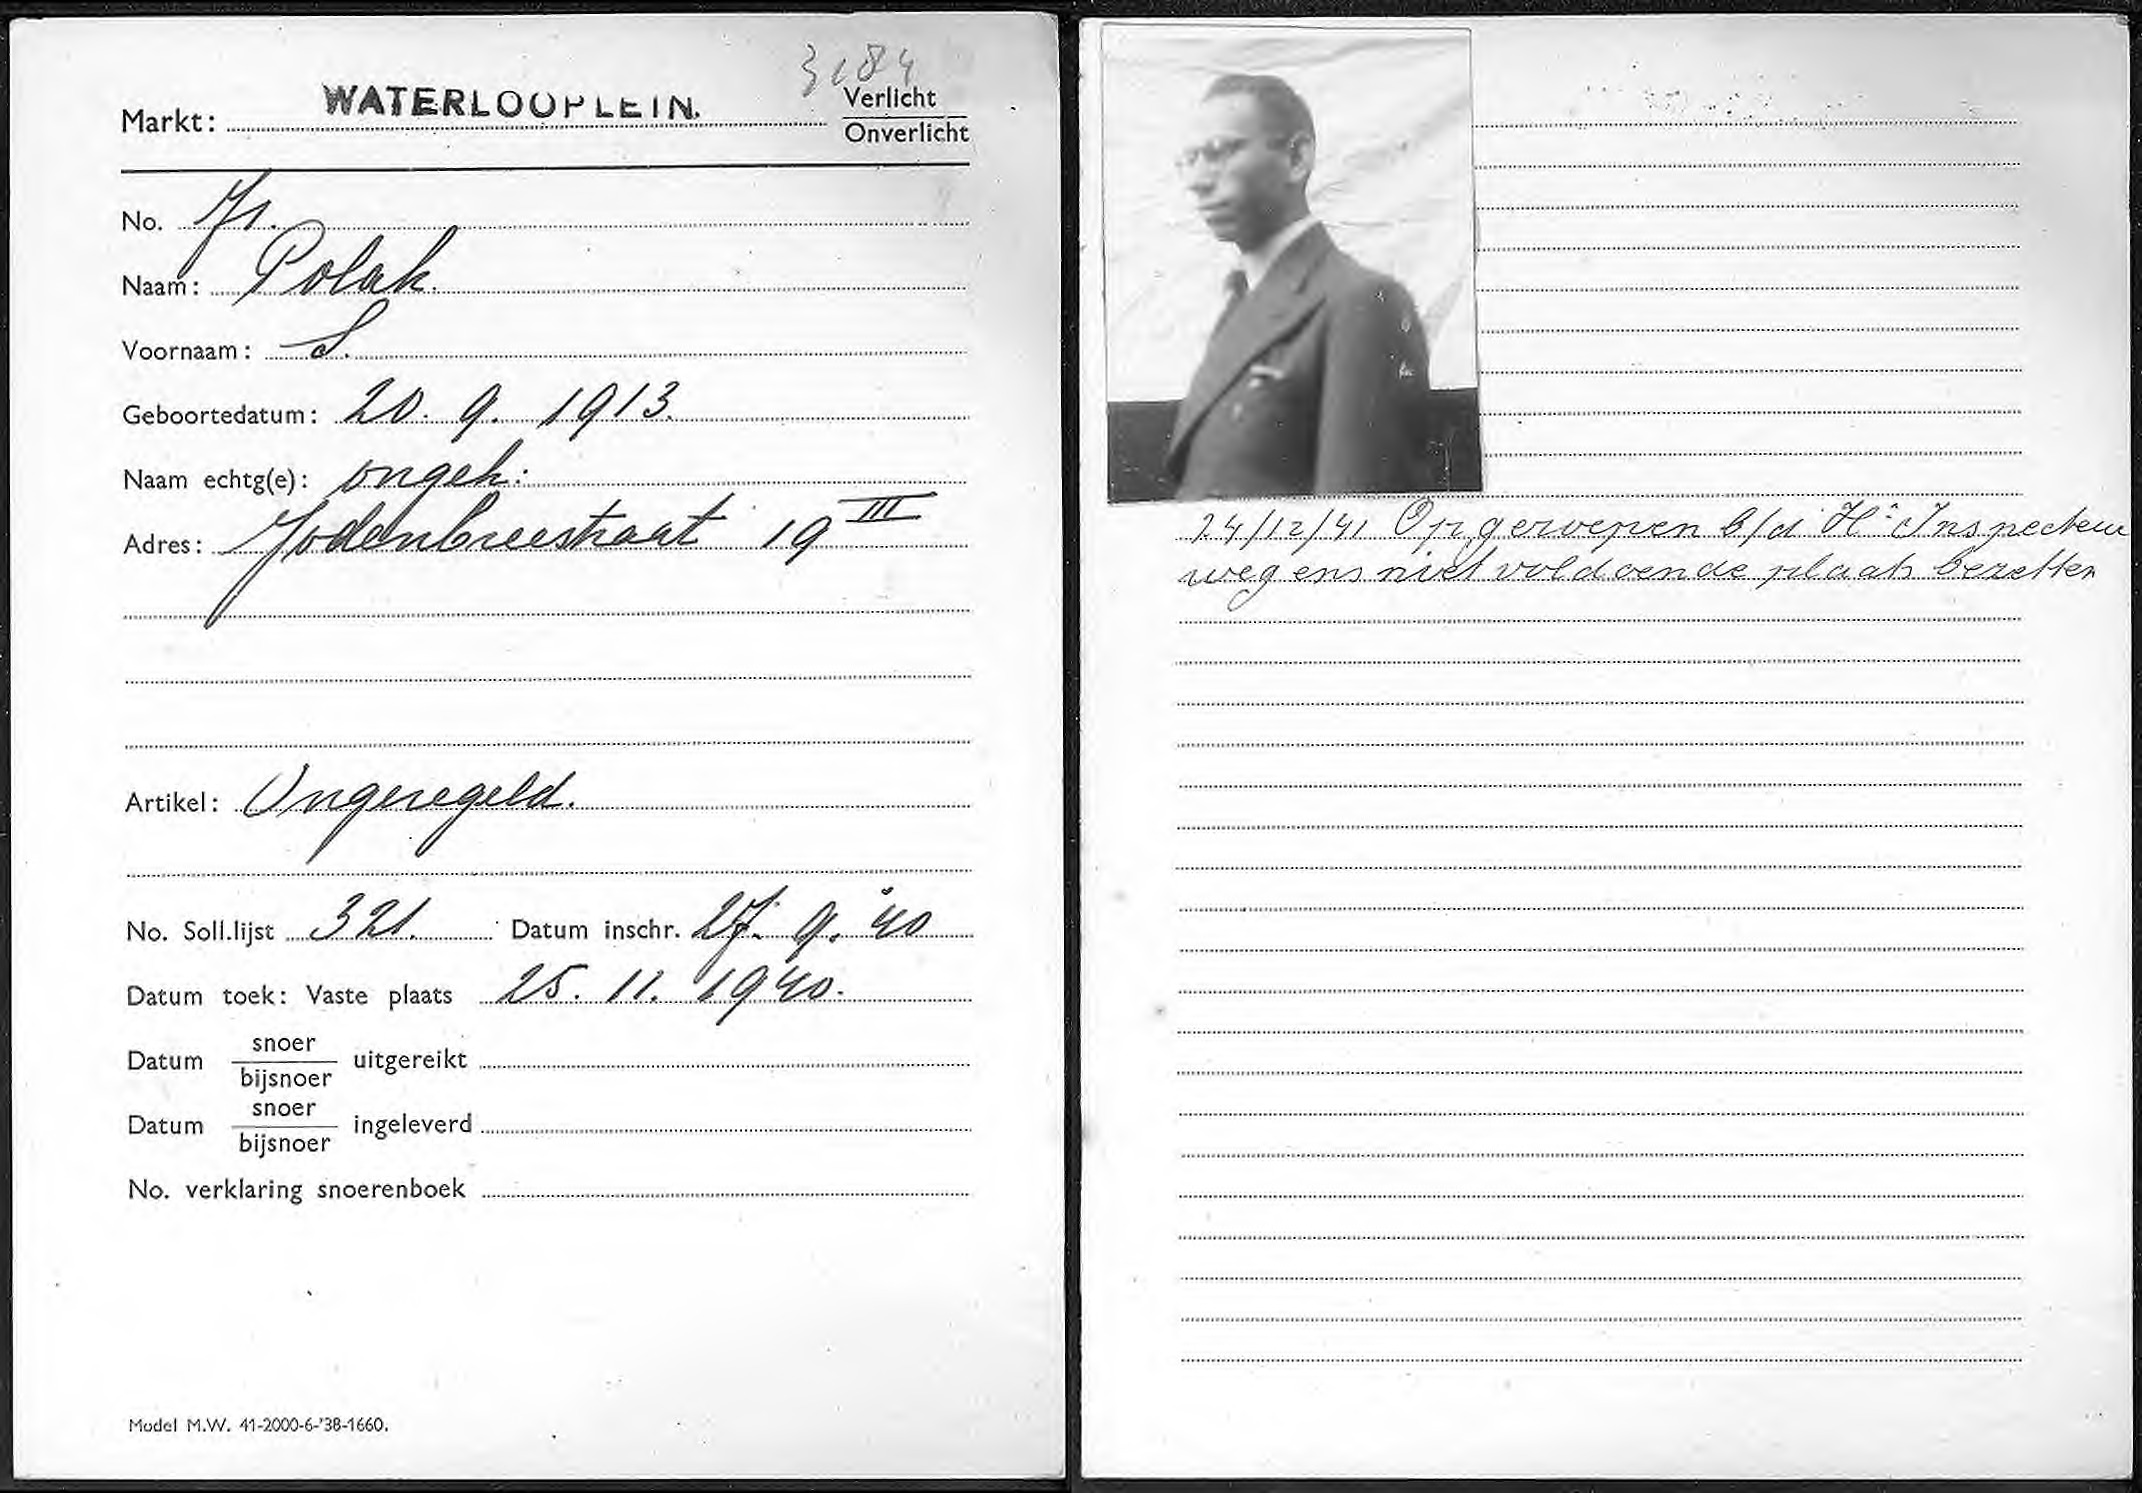 3184
Markt: WATERLOOPLEIN. Verlicht
Onverlicht
No. 71.
Naam: Polak.
Voornaam: S.
Geboortedatum: 20. 9. 1913.
Naam echtg(e): ongeh:
Adres: Jodenbreestraat 19 III
Artikel: Ongeregeld.
No. Soll.lijst 321. Datum inschr. 27. 9. '40
Datum toek: Vaste plaats 25. 11. 1940.
Datum snoer/bijsnoer uitgereikt
Datum snoer/bijsnoer ingeleverd
No. verklaring snoerenboek
Model M.W. 41-2000-6-'38-1660.
24/12/41 Opgeroepen b/d Hr Inspecteur
wegens niet voldoende plaats bezetten